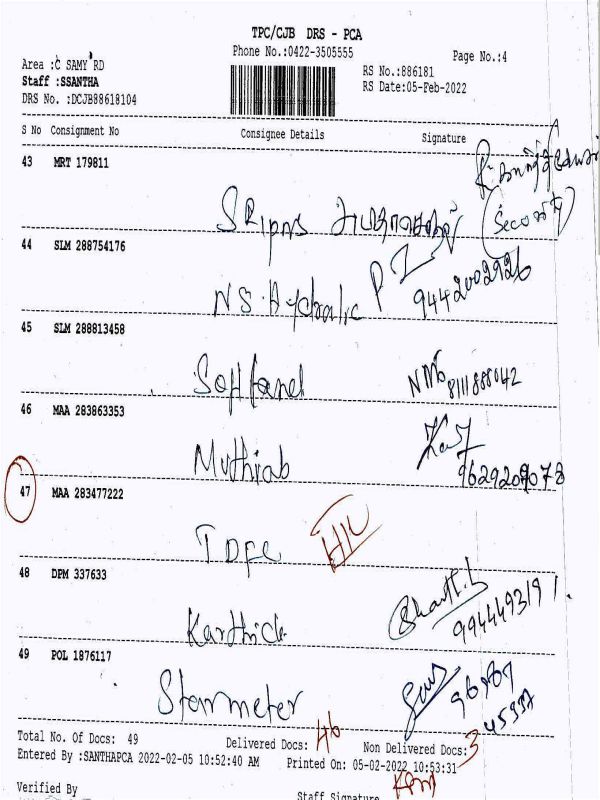 TPC/CJB DRS - PCA
Phone No.:0422-3505555
Page No.:4
Area :C SAMY RD
RS No.:886181
Staff :SSANTHA
RS Date:05-Feb-2022
DRS No. :DCJB88618104
S No Consignment No Consignee Details Signature
43 MRT 179811
SRipms
(Security)
44 SLM 288754176
9442002926
N.S. Hydralic
45 SLM 288813458
Softanel
46 MAA 283863353
Muthiah
9629209078
47 MAA 283477222
TDFC
48 DPM 337633
Karthick
9944493191.
49 POL 1876117
Starmeter
96787
45337
Total No. Of Docs: 49 Delivered Docs: 46 Non Delivered Docs: 3
Entered By :SANTHAPCA 2022-02-05 10:52:40 AM Printed On: 05-02-2022 10:53:31
Verified By
Staff Signature